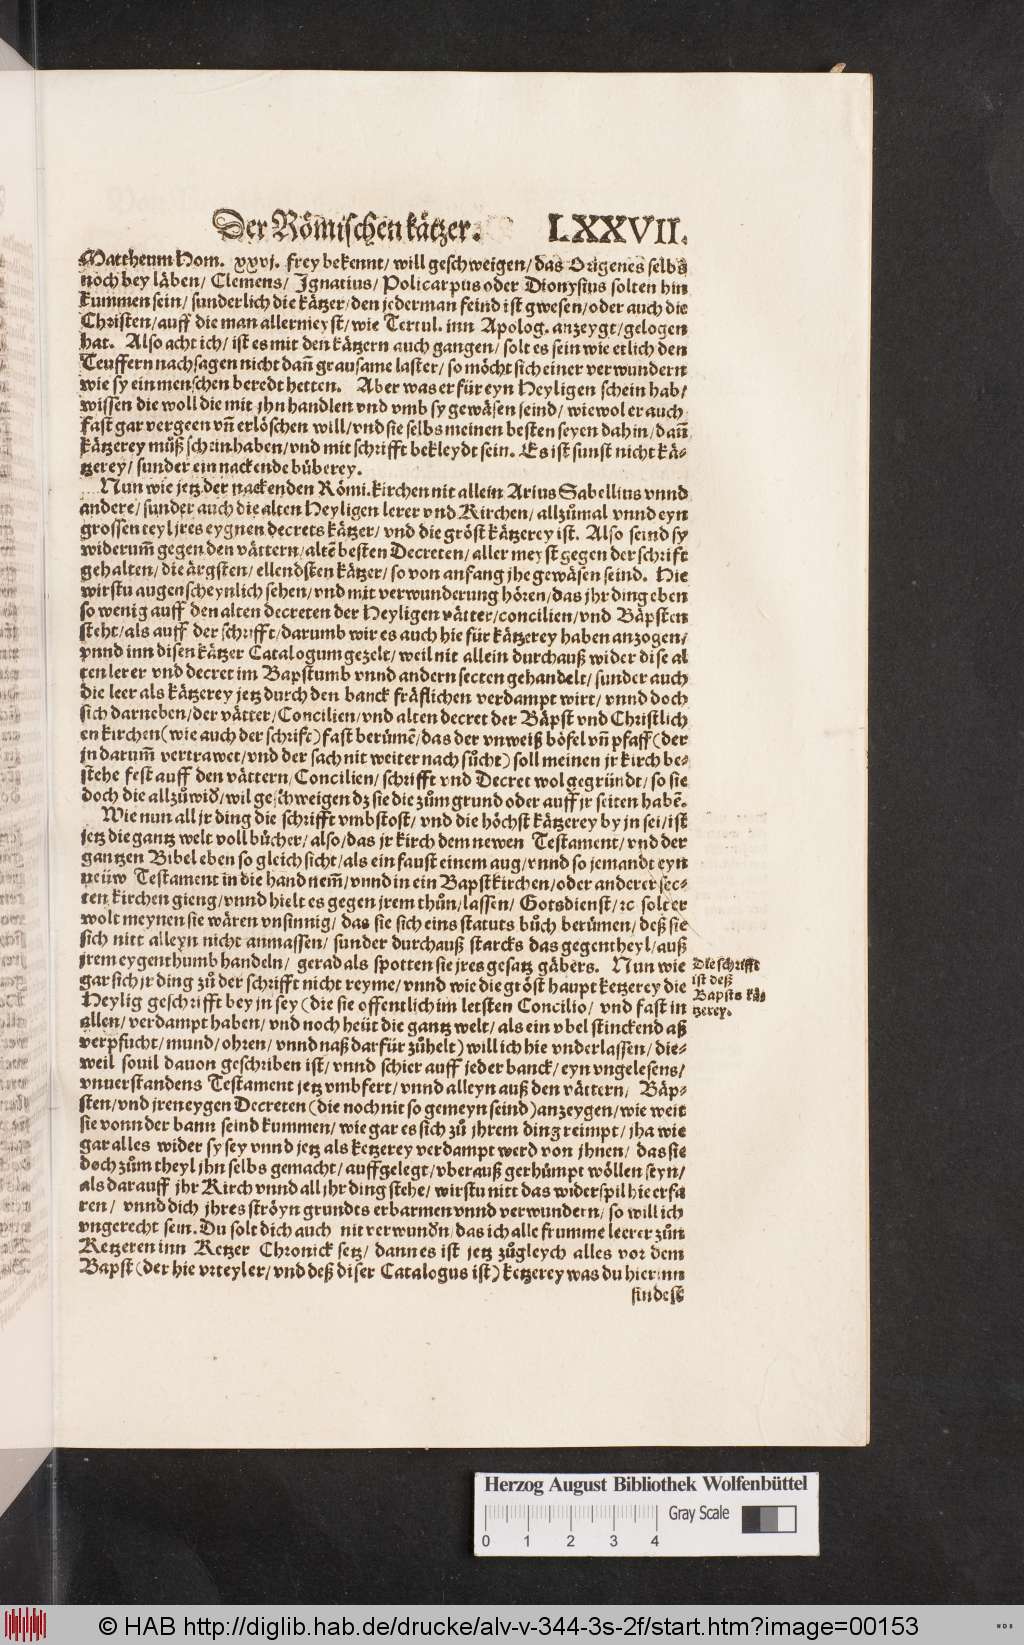 Der Römischen kätzer. LXXVII.
Mattheum Hom. xxvj. frey bekennt/ will geschweigen/ das Origenes selbs
noch bey läben/ Clemens/ Ignatius/ Policarpus oder Dionysius solten hin
kummen sein/ sunderlich die kätzer/ den jederman feind ist gwesen/ oder auch die
Christen/ auff die man allermeyst/ wie Tertul. inn Apolog. anzeygt/ gelogen
hat. Also acht ich/ ist es mit den kätzern auch gangen/ solt es sein wie etlich den
Teuffern nachsagen nicht dañ grausame laster/ so möcht sich einer verwundern
wie sy ein menschen beredt hetten. Aber was er für eyn Heyligen schein hab/
wissen die woll die mit jhn handlen vnd vmb sy gewäsen seind/ wiewol er auch
fast gar vergeen vñ erlöschen will/ vnd sie selbs meinen besten seyen dahin/ dañ
kätzerey můß schein haben/ vnd mit schrifft bekleydt sein. Es ist sunst nicht kä-
tzerey/ sunder ein nackende bůberey.
Nun wie jetz der nackenden Römi. kirchen nit allein Arius Sabellius vnnd
andere/ sunder auch die alten Heyligen lerer vnd Kirchen/ allzůmal vnnd eyn
grossen teyl jres eygnen decrets kätzer/ vnd die gröst kätzerey ist. Also seind sy
widerum̃ gegen den vättern/ altē besten Decreten/ aller meyst gegen der schrift
gehalten/ die ärgsten/ ellendsten kätzer/ so von anfang jhe gewäsen seind. Hie
wirstu augenscheynlich sehen/ vnd mit verwunderung hören/ das jhr ding eben
so wenig auff den alten decreten der Heyligen vätter/ concilien/ vnd Bäpsten
steht/ als auff der schrifft/ darumb wir es auch hie für kätzerey haben anzogen/
vnnd inn disen kätzer Catalogum gezelt/ weil nit allein durchauß wider dise al
ten lerer vnd decret im Bapstumb vnnd andern secten gehandelt/ sunder auch
die leer als kätzerey jetz durch den banck fräflichen verdampt wirt/ vnnd doch
sich darneben/ der vätter/ Concilien/ vnd alten decret der Bäpst vnd Christlich
en kirchen (wie auch der schrift) fast berümē/ das der vnweiß böfel vñ pfaff (der
jn darum̃ vertrawet/ vnd der sach nit weiter nach sücht) soll meinen jr kirch be-
stehe fest auff den vättern/ Concilien/ schrifft vnd Decret wol gegründt/ so sie
doch die allzůwiđ/ wil geschweigen dz sie die zům grund oder auff jr seiten habē.
Wie nun all jr ding die schrifft vmbstost/ vnd die höchst kätzerey by jn sei/ ist
jetz die gantz welt voll bücher/ also/ das jr kirch dem newen Testament/ vnd der
gantzen Bibel eben so gleich sicht/ als ein faust einem aug/ vnnd so jemandt eyn
neüw Testament in die hand nem̃/ vnnd in ein Bapstkirchen/ oder anderer sec-
ten kirchen gieng/ vnnd hielt es gegen jrem thůn/ lassen/ Gotsdienst/ ꝛc solt er
wolt meynen sie wären vnsinnig/ das sie sich eins statuts bůch berümen/ deß sie
sich nitt alleyn nicht anmassen/ sunder durchauß starcks das gegentheyl/ auß
jrem eygenthumb handeln/ gerad als spotten sie jres gesatz gäbers. Nun wie
gar sich jr ding zů der schrifft nicht reyme/ vnnd wie die gröst haupt ketzerey die
Heylig geschrifft bey jn sey (die sie offentlich im letsten Concilio/ vnd fast in
allen/ verdampt haben/ vnd noch heüt die gantz welt/ als ein vbel stinckend aß
verpfucht/ mund/ ohren/ vnnd naß darfür zůhelt) will ich hie vnderlassen/ die-
weil souil dauon geschriben ist/ vnnd schier auff jeder banck/ eyn vngelesens/
vnuerstandens Testament jetz vmbfert/ vnnd alleyn auß den vättern/ Bäp-
sten/ vnd jren eygen Decreten (die noch nit so gemeyn seind) anzeygen/ wie weit
sie vonn der bann seind kummen/ wie gar es sich zů jhrem ding reimpt/ jha wie
gar alles wider sy sey vnnd jetz als ketzerey verdampt werd von jhnen/ das sie
doch zům theyl jhn selbs gemacht/ auffgelegt/ vberauß gerhümpt wöllen seyn/
als darauff jhr Kirch vnnd all jhr ding stehe/ wirstu nitt das widerspil hie erfa
ren/ vnnd dich jhres ströyn grundts erbarmen vnnd verwundern/ so will ich
vngerecht sein. Du solt dich auch nit verwunđn/ das ich alle frumme leerer zůn
Ketzeren inn Ketzer Chronick setz/ dann es ist jetz zůgleych alles vor dem
Bapst (der hie vrteyler/ vnd deß diser Catalogus ist) ketzerey was du hierinn
findest
Die schrifft
ist deß
Bapsts kä-
tzerey.
Herzog August Bibliothek Wolfenbüttel
0 1 2 3 4
Gray Scale
© HAB http://diglib.hab.de/drucke/alv-v-344-3s-2f/start.htm?image=00153